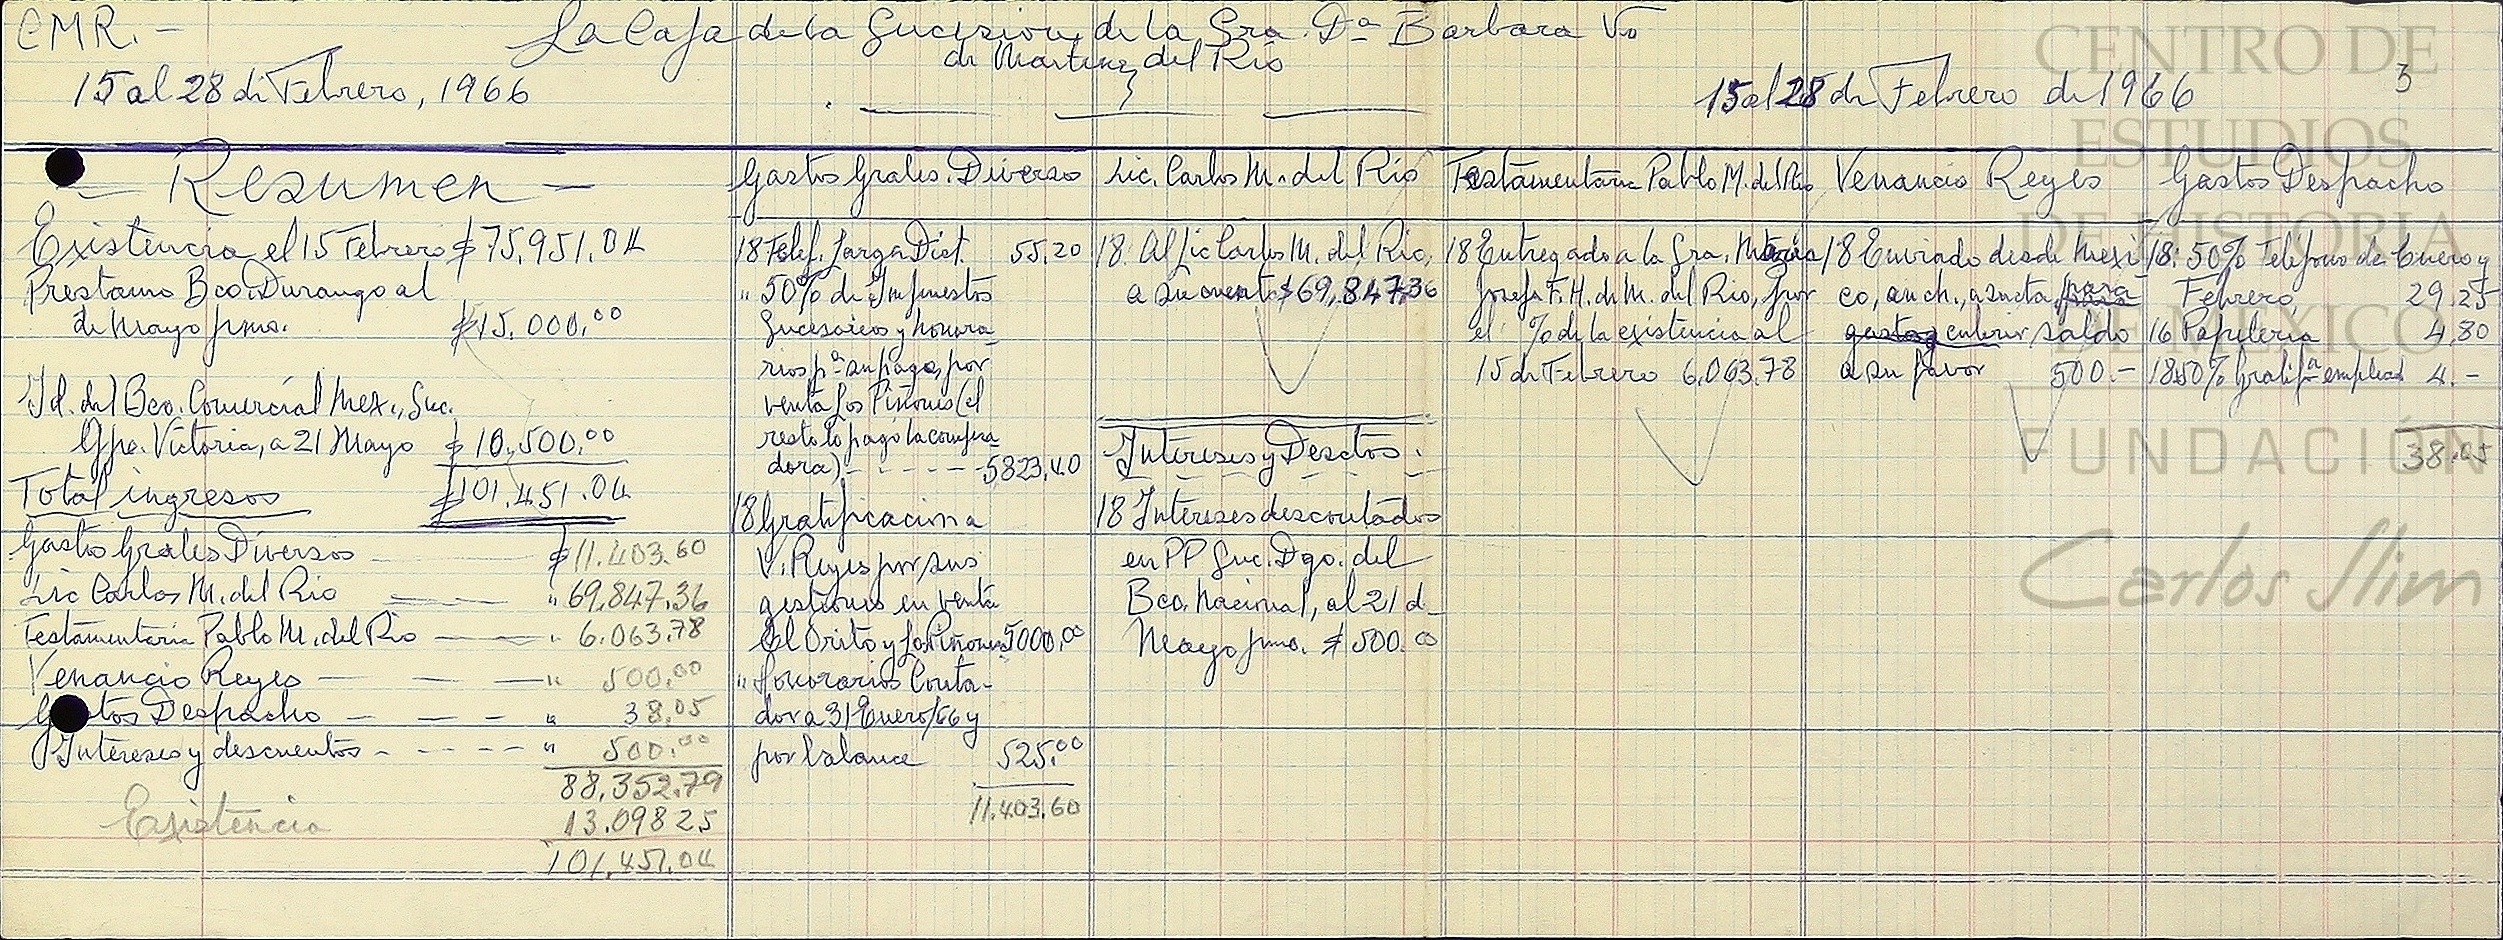 CMR.-
La Caja de la Sucesion de la Sra. Dª Barbara V.
de Martinez del Rio
15 al 28 de Febrero, 1966
15 al 28 de Febrero de 1966
3
CENTRO DE
ESTUDIOS
DE HISTORIA
DE MEXICO
FUNDACIÓN
Carlos Slim
- Resumen -
Existencia el 15 Febrero $75,951.04
Prestamo Bco. Durango al
de Mayo pmo. $15.000.00
Id. del Bco. Comercial Mex., Suc.
Gpe. Victoria, a 21 Mayo $10,500.00
Total ingresos $101.451.04
Gastos Grales Diversos $11.403.60
Lic Carlos M. del Rio " 69,847.36
Testamentaria Pablo M. del Rio " 6.063.78
Venancio Reyes " 500.00
Gastos Despacho " 38.05
Intereses y descuentos " 500.00
88,352.79
Existencia 13.098 25
101,451.04
Gastos Grales. Diversos
18 Telef. Larga Dist. 55.20
" 50% de Impuestos
Sucesorios y honora-
rios pª su pago, por
venta Los Piñones (el
resto lo pagó la compra-
dora) - - - - - 5823.40
18 Gratificacion a
V. Reyes por sus
gestiones en venta
El Orito y Los Piñones 5000.00
" Honorarios Conta-
dor a 31 Enero/66 y
por balance 525.00
11.403.60
Lic. Carlos M. del Rio
18. Al Lic Carlos M. del Rio,
a su cuenta $69,847.36
Intereses y Desctos.
18 Intereses descontados
en PP Suc. Dgo. del
Bco. Nacional, al 21 d
Mayo pmo. $500.00
Testamentaria Pablo M. del Rio
18 Entregado a la Sra. Maria
Josefa F. H. de M. del Rio, por
el % de la existencia al
15 de Febrero 6,063.78
Venancio Reyes
18 Enviado desde Mexi
co, en ch., a su cta para
gastos cubrir saldo
a su favor 500.-
Gastos Despacho
18. 50% Teléfono de Enero y
Febrero 29.25
16 Papeleria 4,80
18 50% Gratifª emplead 4.-
38.05